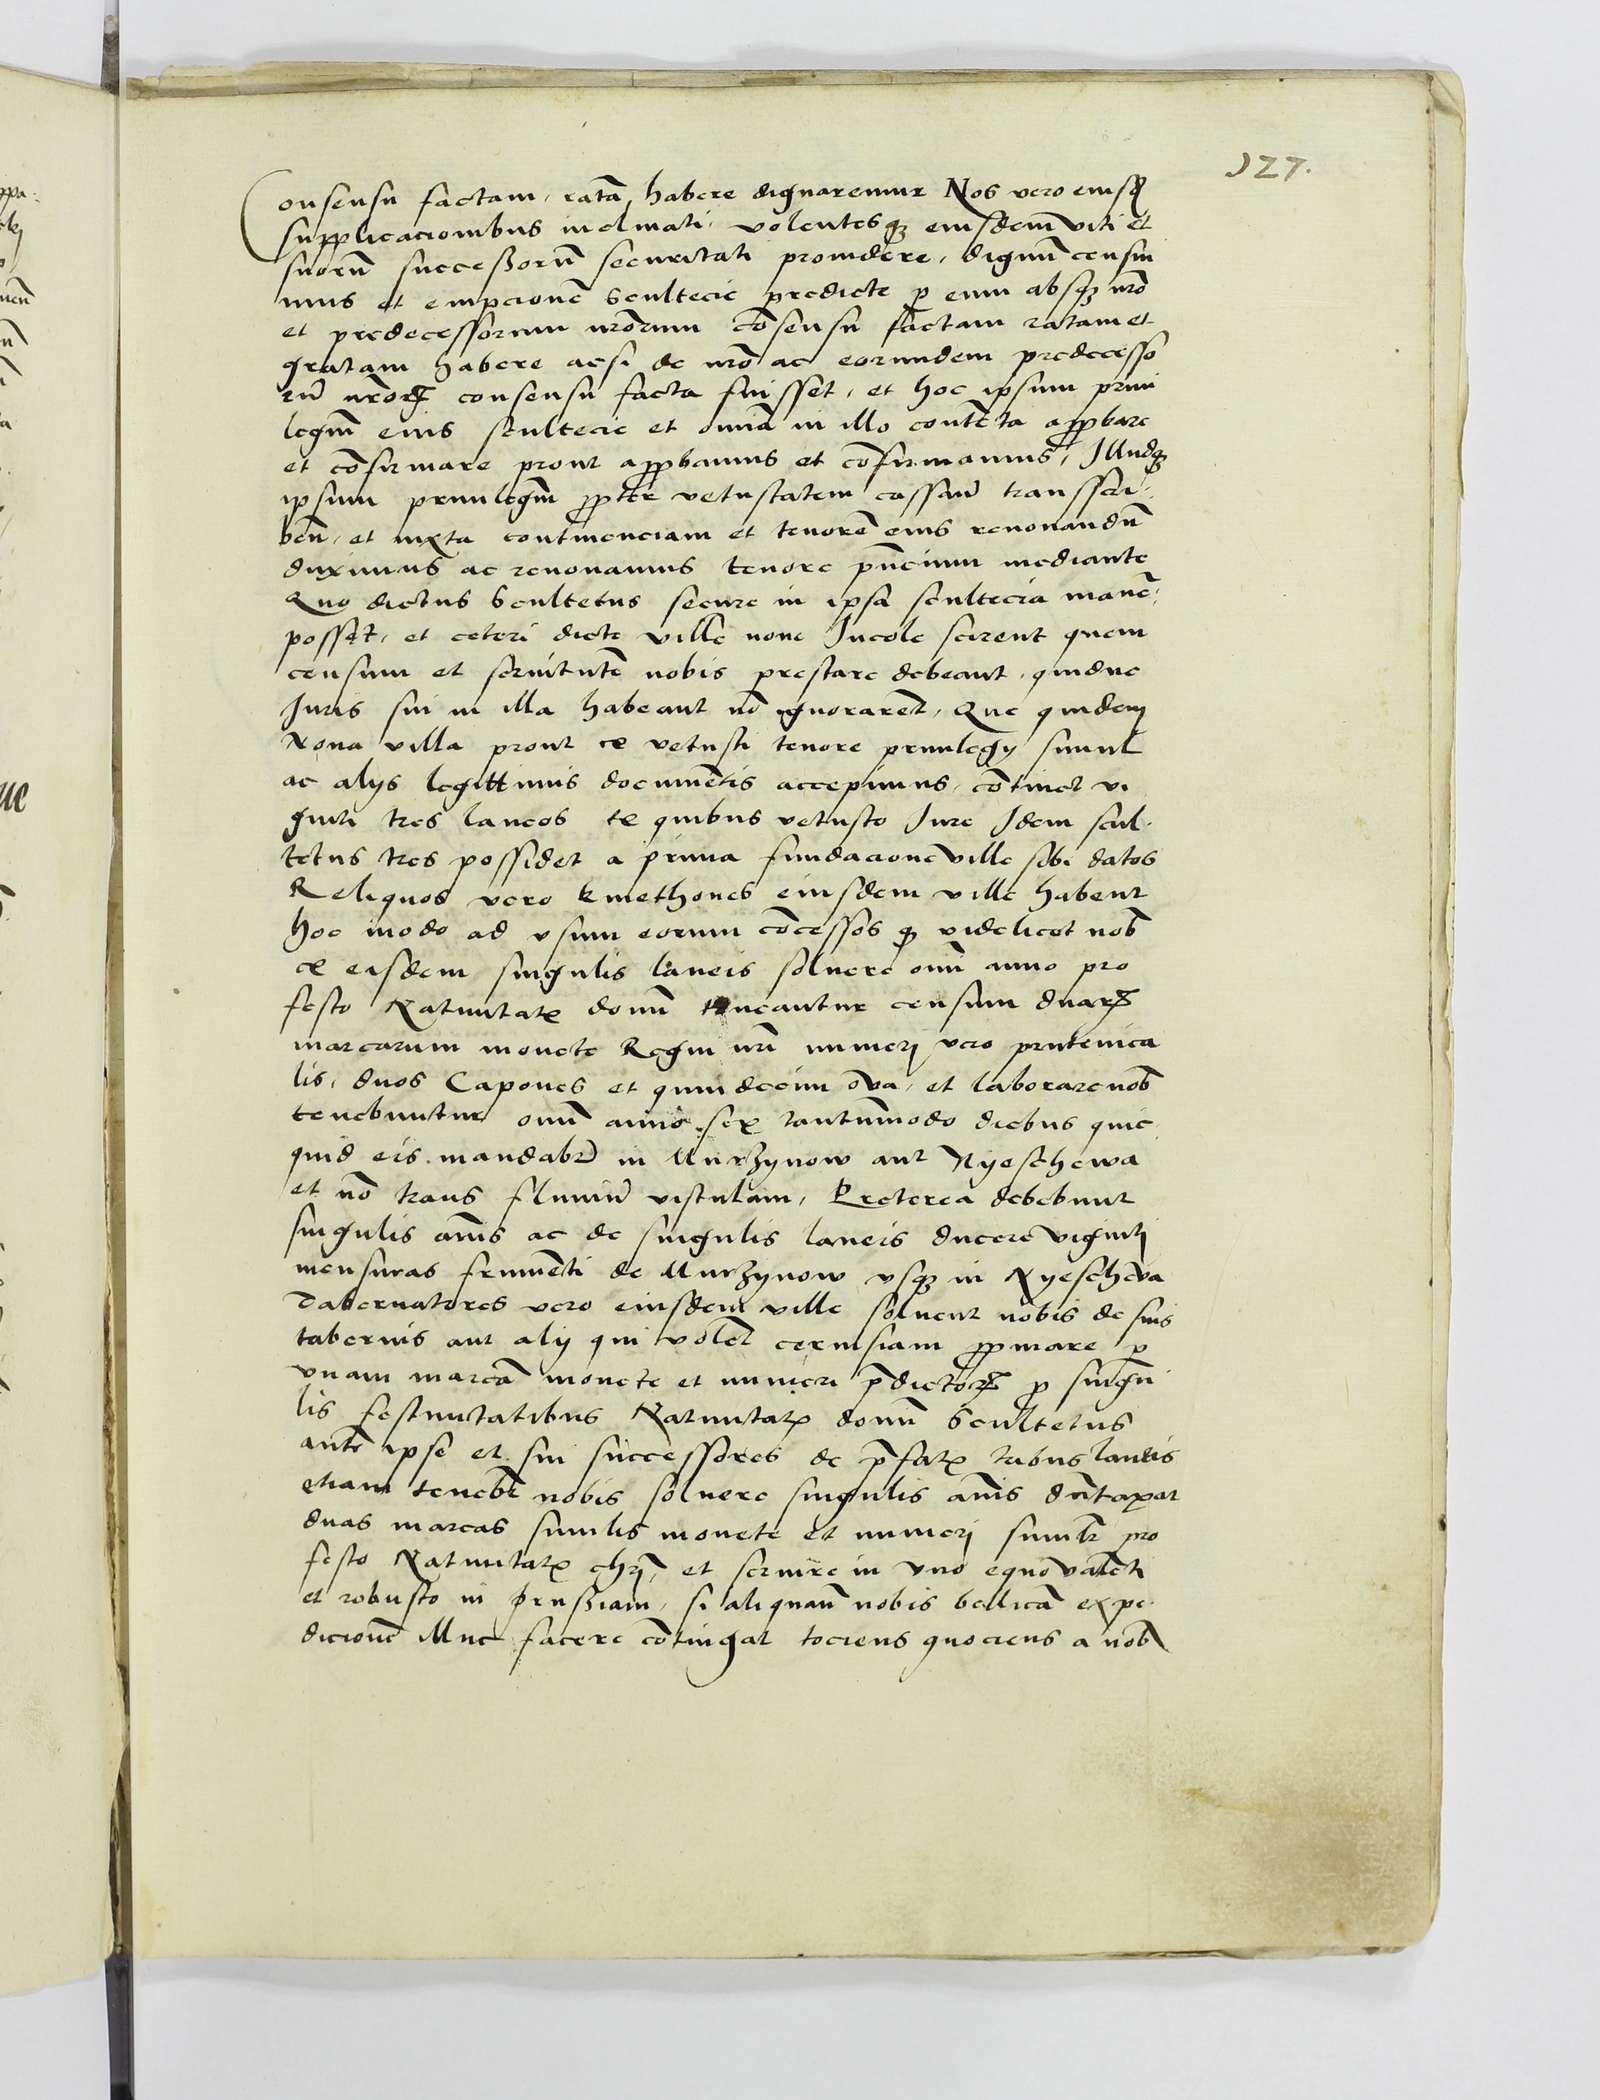 127.
Consensu factam, ratã habere dignaremur Nos vero eiusd
supplicacionibus inclinati, volentesq̃ eiusdem viti et
suorũ successorũ securitati prouidere, dignũ censui
mus et empcionẽ scultecie predicte p eum absq̃ nr̃o
et predecessorum nr̃orum cõsensu factam ratam et
gratam habere acsi de nr̃o ac eorundem predecesso
rũ nr̃oꝝ consensu facta fuisset, et hoc ipsum priui
legiũ eius scultecie et omnia in illo contẽta approbare
et cõfirmare prout approbamus et cõfirmamus, Illudq̃
ipsum priuilegiũ propter vetustatem cassatũ transscri
ben, et iuxta continenciam et tenorẽ eius renouandũ
duximus ac renouamus tenore pñcium mediante
Quo dictus Scultetus secure in ipsa scultecia manẽ
posset, et ceteri dicte ville noue Incole scirent quem
censum et seruitutẽ nobis prestare debeant, quidue
Iuris sui in illa habeant nõ ignorarẽt, Que quidem
Noua villa prout ex vetusti tenore priuilegij simul
ac alijs legittimis documẽtis accepimus, cõtinet vi
ginti tres laneos ex quibus vetusto Iure Idem scul
tetus tres possidet a prima fundacione ville sibi datos
Reliquos vero kmethones eiusdem ville habent
hoc modo ad vsum eorum cõcessos qͩ videlicet nob̃
ex eisdem singulis laneis soluere om̃i anno pro
festo Natiuitatꝭ domĩ teneantur censum duaꝝ
marcarum monete Regni nr̃i numeri vero prutenica
lis, duos Capones et quindecim oua, et laborare nob̃
tenebuntur om̃i anno sex tantũmodo diebus quic
quid eis mandabit̃ in Murzynow aut Nyeschewa
et nõ trans fluuiũ vistulam, Preterea debebunt
singulis añis ac de singulis laneis ducere viginti
mensuras frumẽti de Murzynow vsq̃ in Nyeschewa
Tabernatores vero eiusdem ville soluent nobis de suis
tabernis aut alij qui volẽt ceruisiam propinare p
vnam marcã monete et numeri p̃dictoꝝ p singu
lis festiuitatibus Natiuitatꝭ domĩ Scultetus
autẽ ipse et sui successores de p̃fatꝭ tribus laneis
etiam tenebit̃ nobis soluere singulis añis dũtaxat
duas marcas similis monete et numeri simil̃r pro
festo Natiuitatꝭ chr̃i, et seruire in vno equo valẽti
et robusto in prussiam, si aliquam nobis bellicã expe
dicionẽ illuc facere cõtingat tociens quociens a nob̃